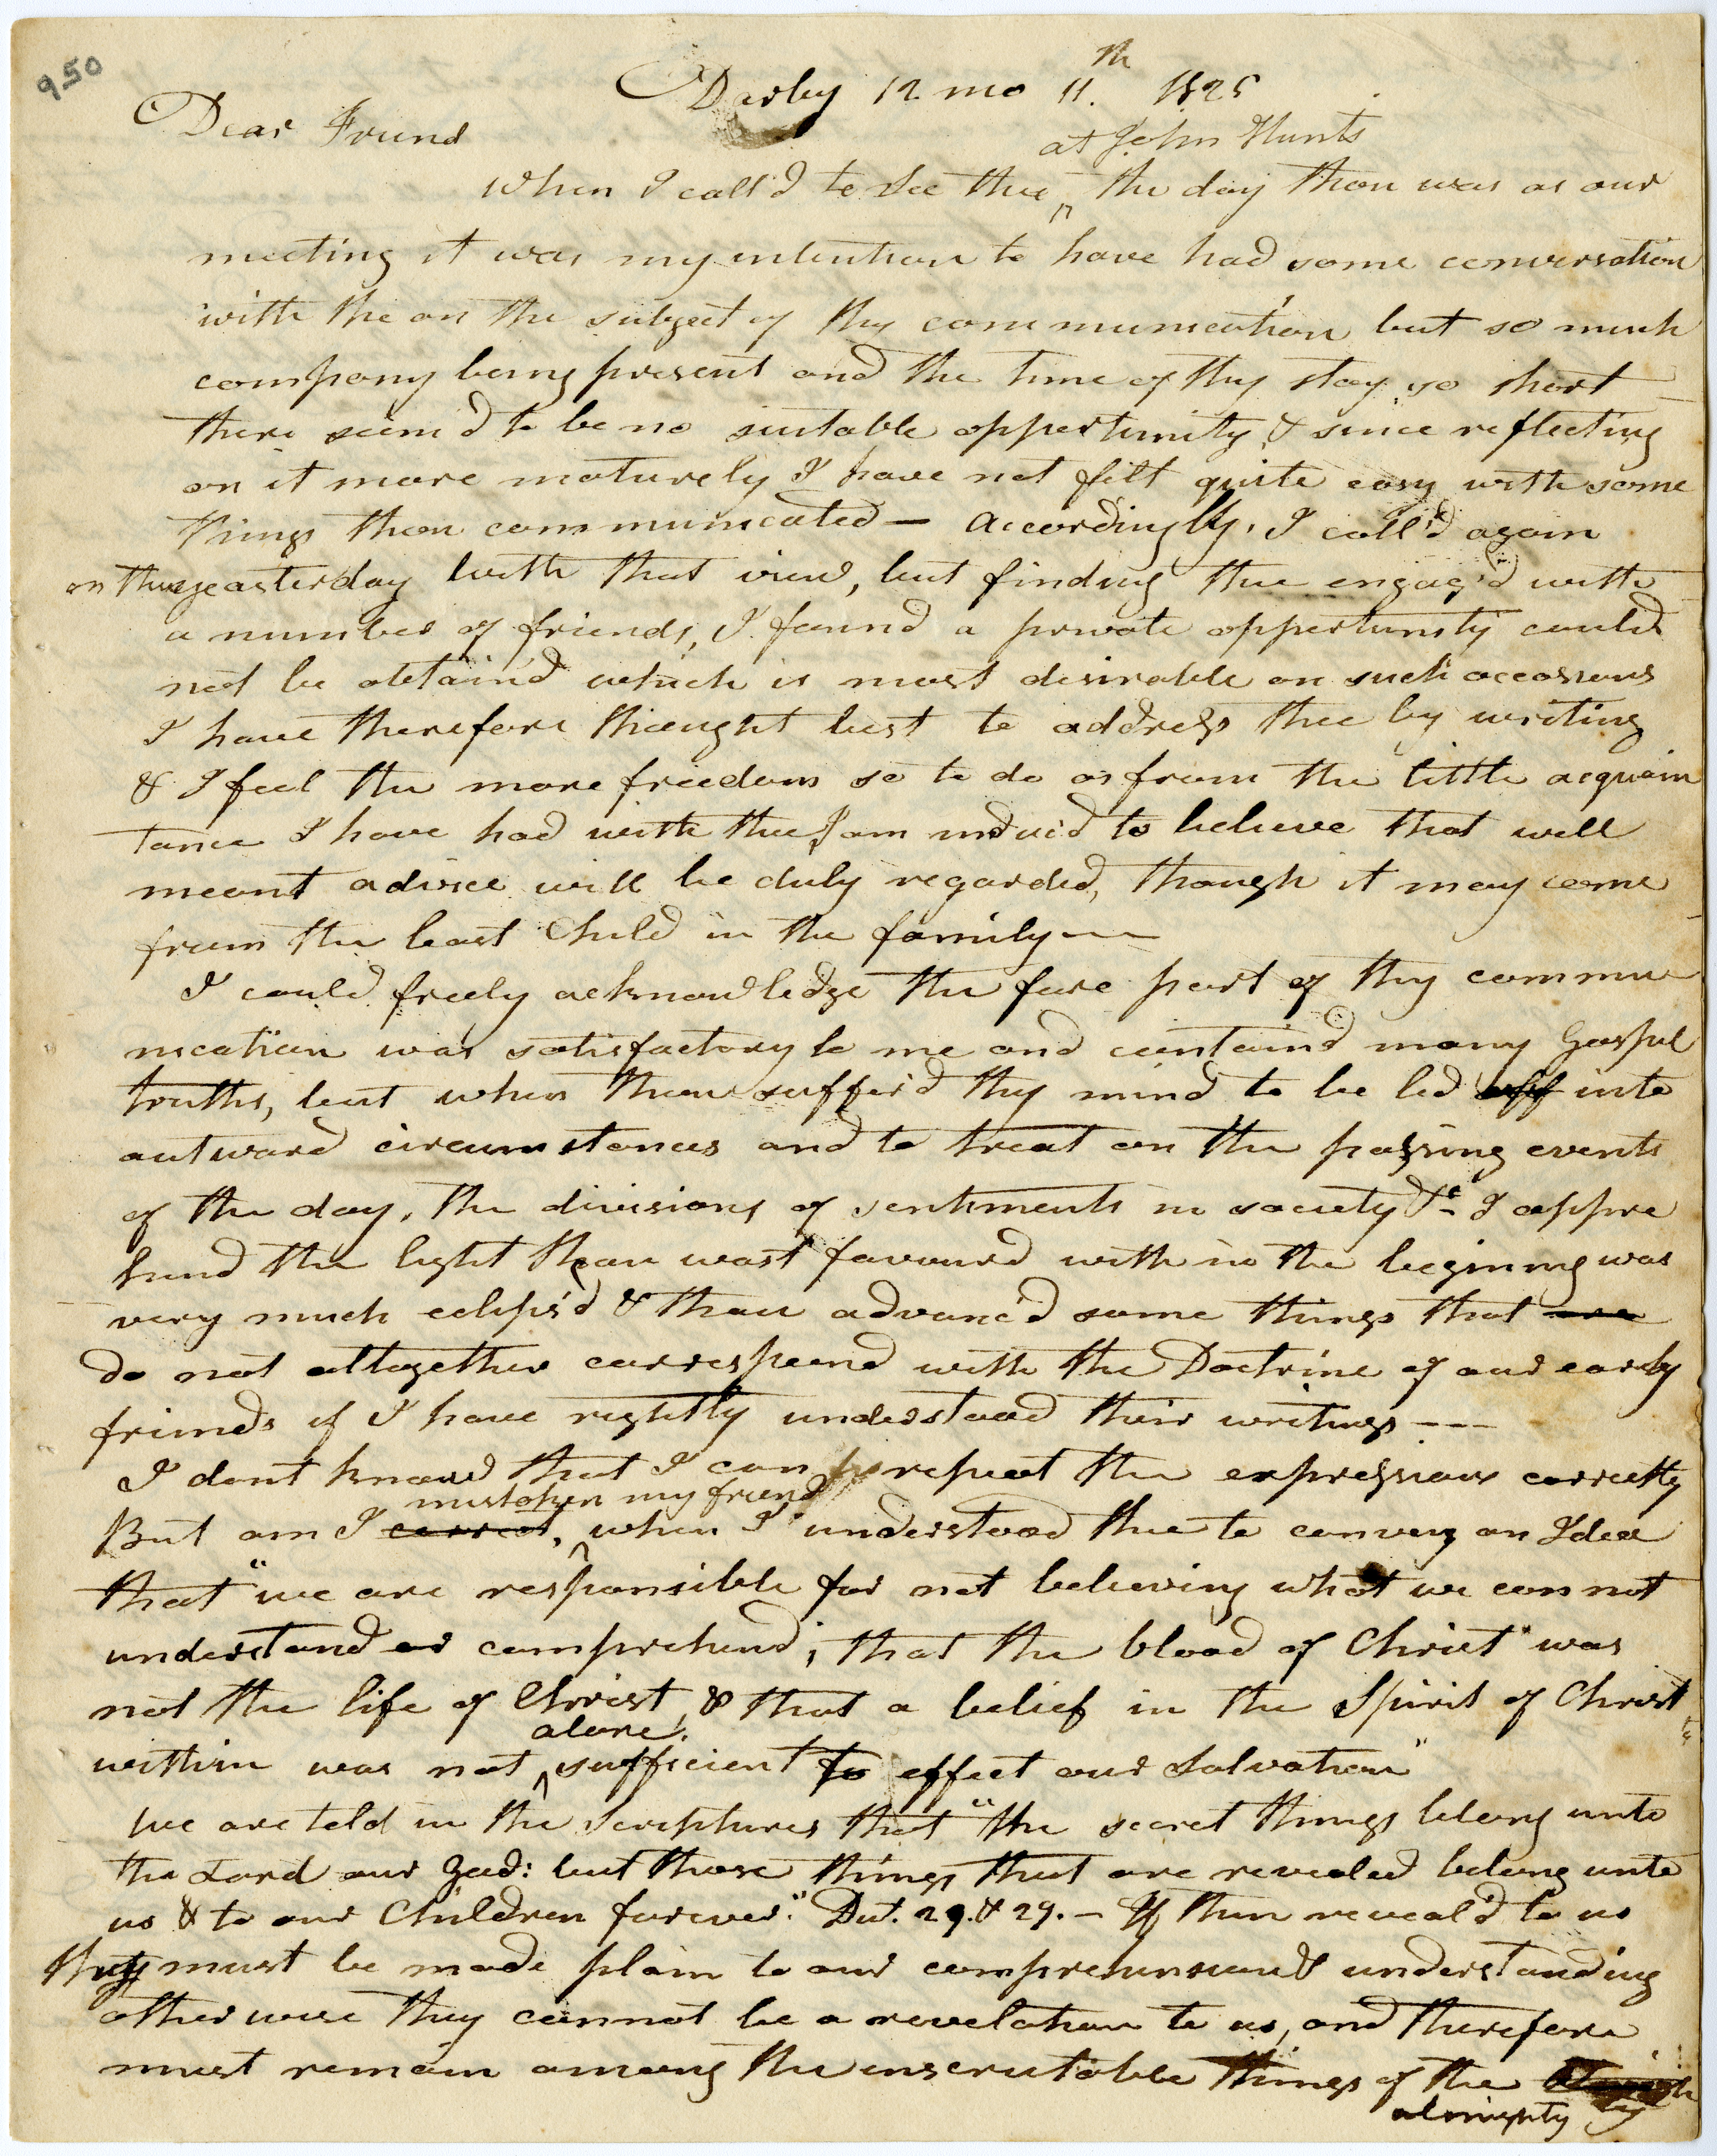 950
Darby 12 mo 11.th 1825
Dear Friend
at John Hunts
When I call'd to see thee ^ the day thou was at our
meeting it was my intention to have had some conversation
with the on the subject of thy communication but so much
company being present and the time of thy stay so short
there seem'd to be no suitable oppertunity & since reflecting
on it more maturely I have not felt quite easy with some
things thou communicated — Accordingly, I call'd again
on thee yeasterday with that view, but finding thee engag'd with
a number of friends, I found a private oppertunity could
not be obtain'd which is most desirable on such occassions
I have therefore thought best to address thee by writing
& I feel the more freedom so to do as from the little acquain
tance I have had with thee I am induc'd to believe that well
meant advice will be duly regarded, though it may come
from the least Child in the family —
I could freely acknowledge the fore part of thy commu
nication was satisfactory to me and contain'd many Gospel
truths, but when thou suffer'd thy mind to be led off into
outward circumstances and to treat on the passing events
of the day, the divisions of sentiments in society &c I appre
hend the light thou wast favoured with in the begining was
very much eclips'd & thou advanc'd some things that are
do not altogether correspond with the Doctrine of our early
friends if I have rightly understood their writings ---
I dont know that I can repeat the expressions correctly
mistaken my friend
But am I correct, ^ when I understood thee to convey an Idea
that "we are responsible for not believing what we can not
understand or comprehend; that the blood of Christ was
not the life of Christ, & that a belief in the Spirit of Christ
alone
within was not ^ sufficient to effect our Salvation"
We are told in the Scriptures that "the secret things belong unto
the Lord our God: but those things that are revealed belong unto
us & to our Children forever." Dut. 29. & 29. — If then reveal'd to us
they must be made plain to our comprehension & understanding
otherwise they cannot be a revelation to us, and therefore
must remain among the inscrutable things of the
almighty